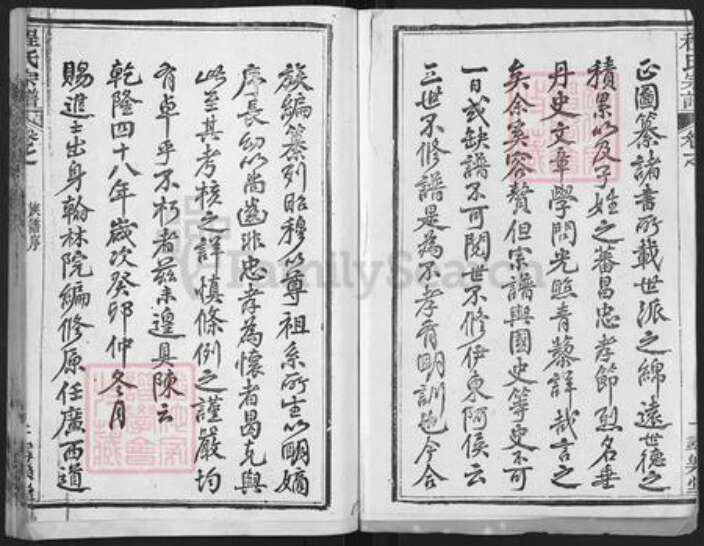 正圖纂諸書所載世派之綿遠世德之
積累以及子姓之蕃昌忠孝節烈名垂
丹史文章學問光照青藜詳哉言之
矣余奚容贅但宗譜與國史等史不可
一日或缺譜不可閱世不修伊東阿侯云
三世不修譜是為不孝有明訓也今合
族編纂列昭穆以尊祖系所生以明嫡
序長幼以尚齒非忠孝為懷者曷克與
此至其考核之詳慎條例之謹嚴均
有卓乎不朽者茲未遑具陳云
乾隆四十八年歲次癸卯仲冬月
賜進士出身翰林院編修原任廣西道
程氏宗譜
族譜序
FamilySearch